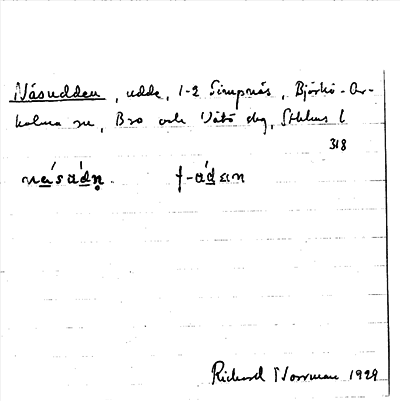 Näsudden, udde, 1-2 Simpnäs, Björkö-Ar-
holma sn, Bro och Vätö skg, Sthlms l
318
Rickard Norrman 1929